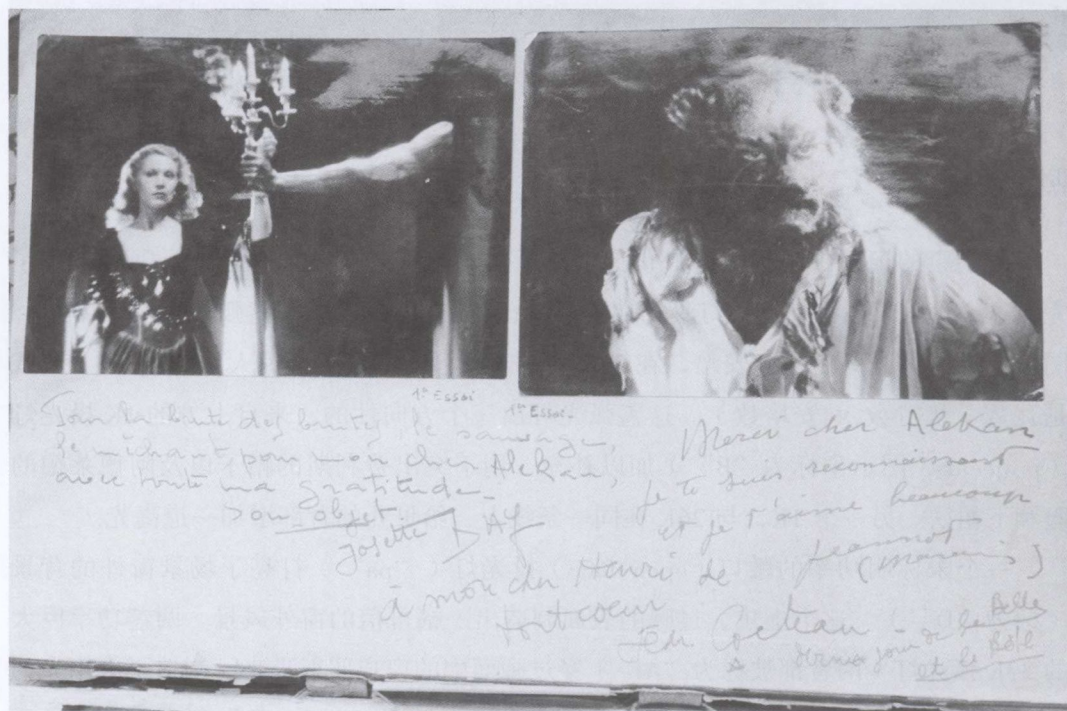 1er Essai
1er Essai.
Pour la brute des brutes, le sauvage,
le méchant pour mon cher Alekan,
avec toute ma gratitude.
Son objet.
Josette DAY
Merci cher Alekan
je te suis reconnaissant
et je t'aime beaucoup
Jeannot
(Marais)
à mon cher Henri de
tout coeur
Jean Cocteau
dernier jour de la Belle
et la Bête